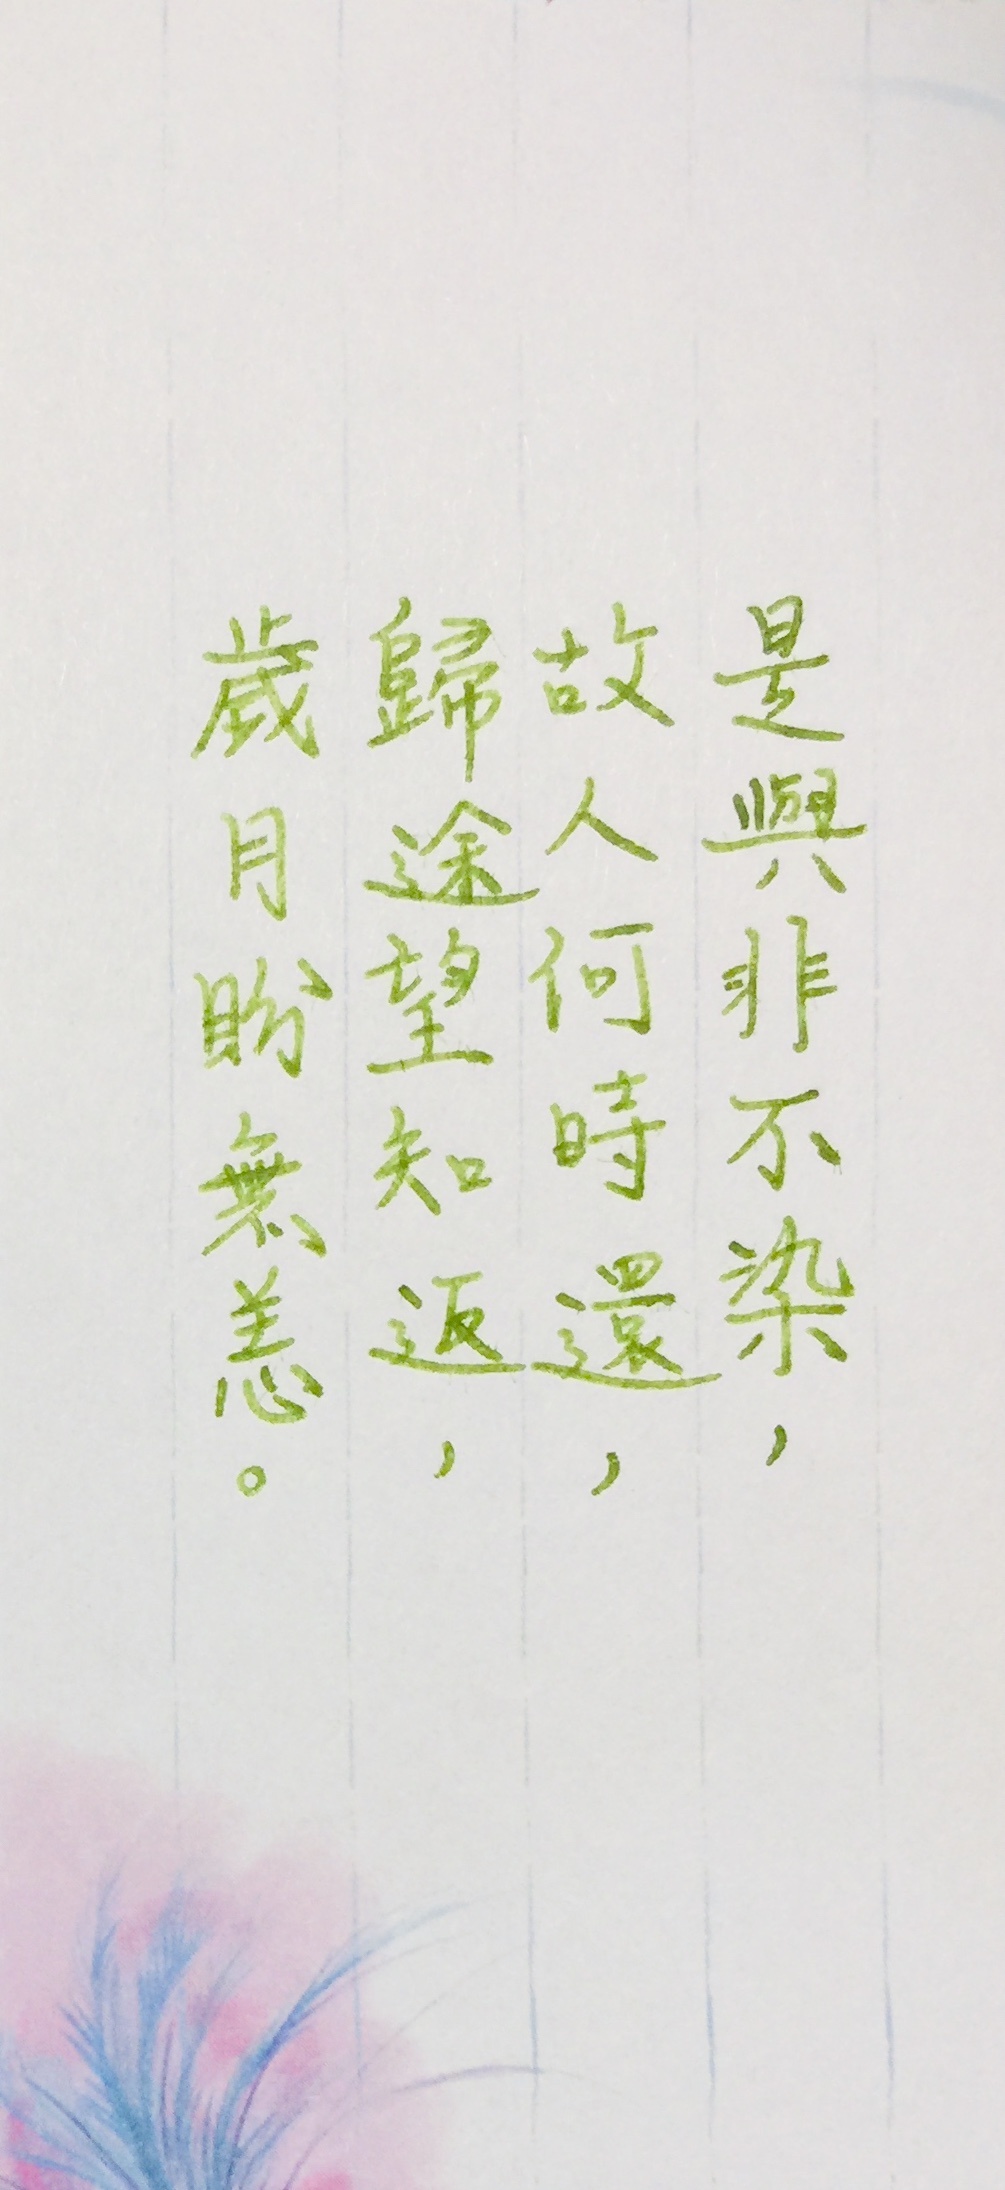 是與非不染，
故人何時還，
歸途望知返，
歲月盼無恙。